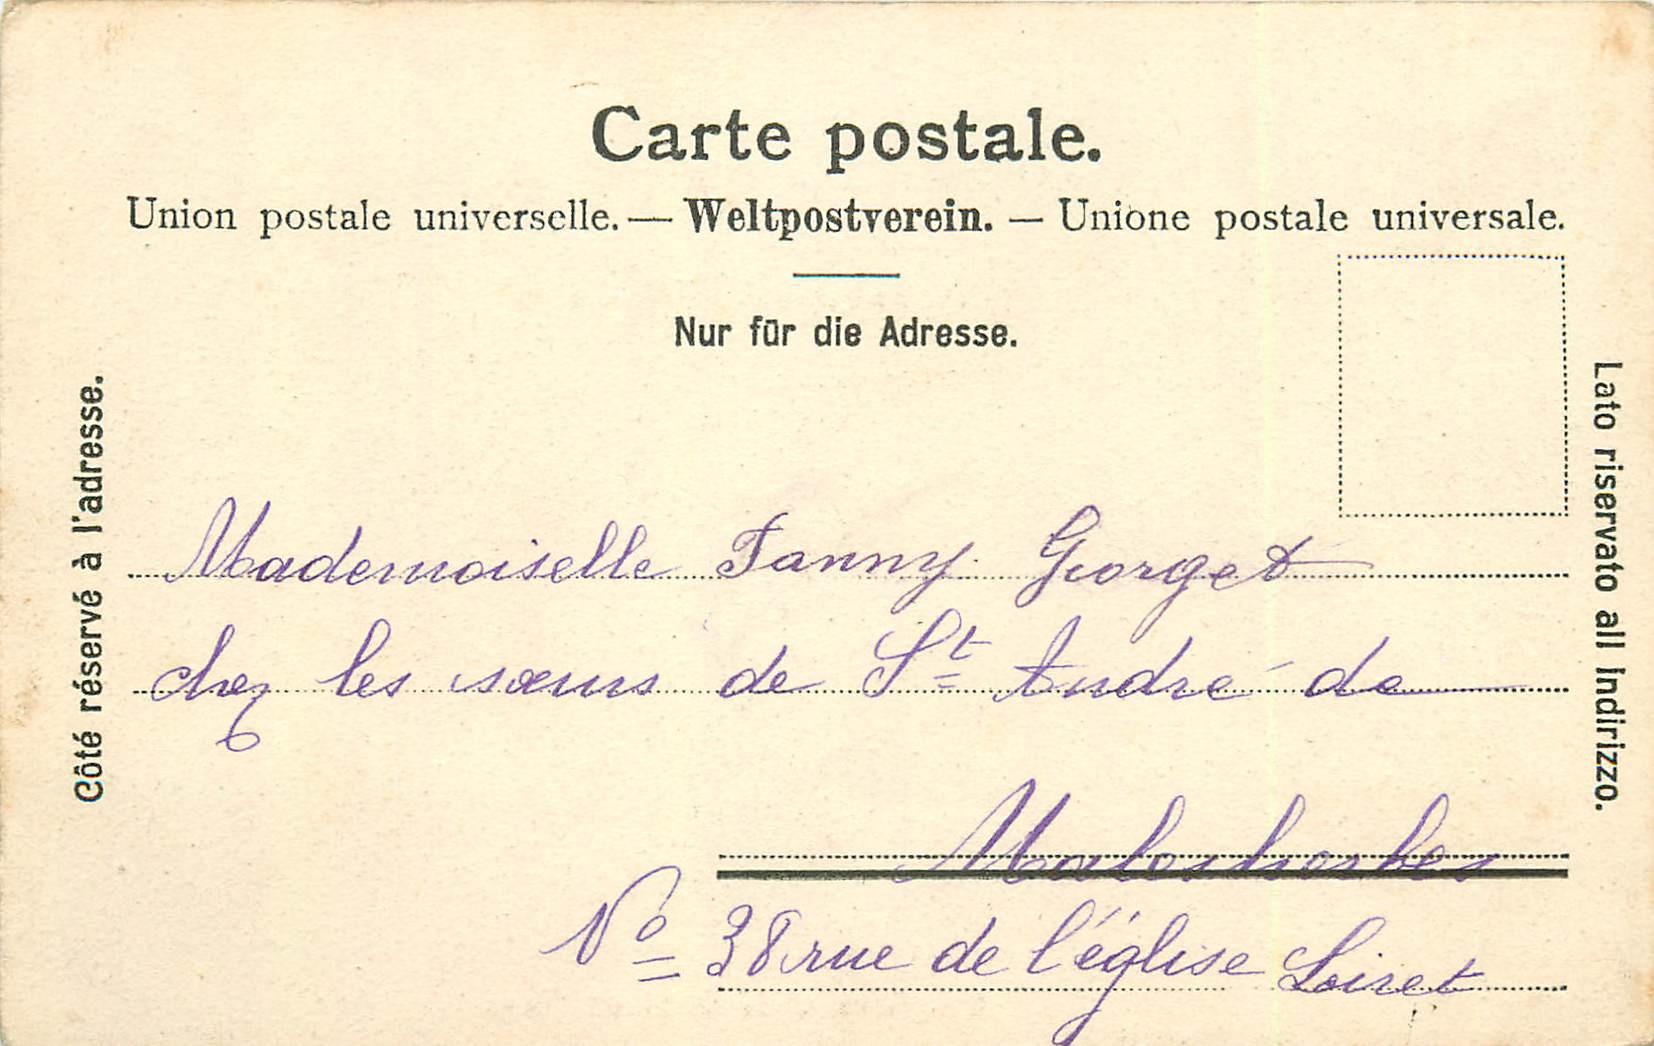 Carte postale.
Union postale universelle. — Weltpostverein. — Unione postale universale.
Nur für die Adresse.
Côté réservé à l'adresse.
Lato riservato all indirizzo.
Mademoiselle Fanny Georget
chez les sœurs de St André de
Malesherbes
No 38 rue de l'église Loiret